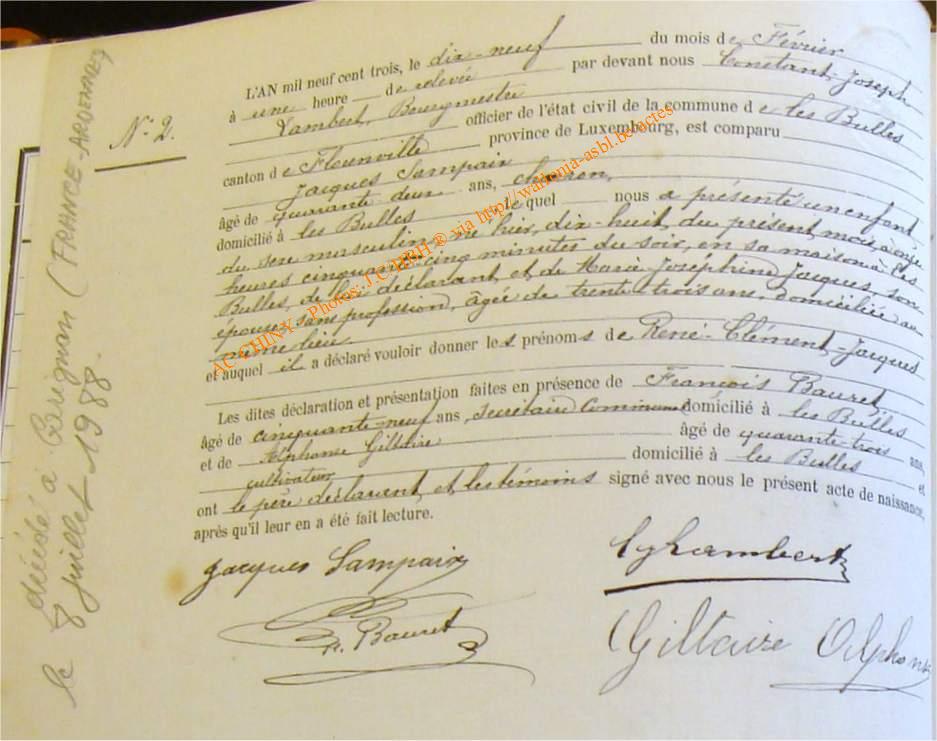 N° 2.
L'AN mil neuf cent trois, le dix-neuf du mois de Février
à une heure de relevée par devant nous Constant-Joseph
Lambert, Bourgmestre
officier de l'état civil de la commune de les Bulles
canton de Florenville province de Luxembourg, est comparu
Jacques Sampaix
âgé de quarante deux ans, charron,
domicilié à les Bulles le quel nous a présenté un enfant
du sexe masculin né hier, dix-huit du présent mois à onze
heures cinquante cinq minutes du soir, en sa maison à Les
Bulles, de lui déclarant et de Marie Joséphine Jacques, son
épouse, sans profession, âgée de trente-trois ans, domiciliée au
même lieu
et auquel il a déclaré vouloir donner les prénoms de René-Clément-Jacques
Les dites déclaration et présentation faites en présence de François Bauret,
âgé de cinquante-neuf ans, secrétaire Communal domicilié à les Bulles
et de Alphonse Giltaire âgé de quarante-trois ans,
cultivateur domicilié à les Bulles et
ont le père déclarant et les témoins signé avec nous le présent acte de naissance,
après qu'il leur en a été fait lecture.
Jacques Sampaix
Lambert
Bauret
Giltaire Alphonse
décédé à Carignan (FRANCE-ARDENNES)
le 8 juillet 1988.
AC CHINY - Photos: J.C. HBH ® via http://wallonia-asbl.be/actes